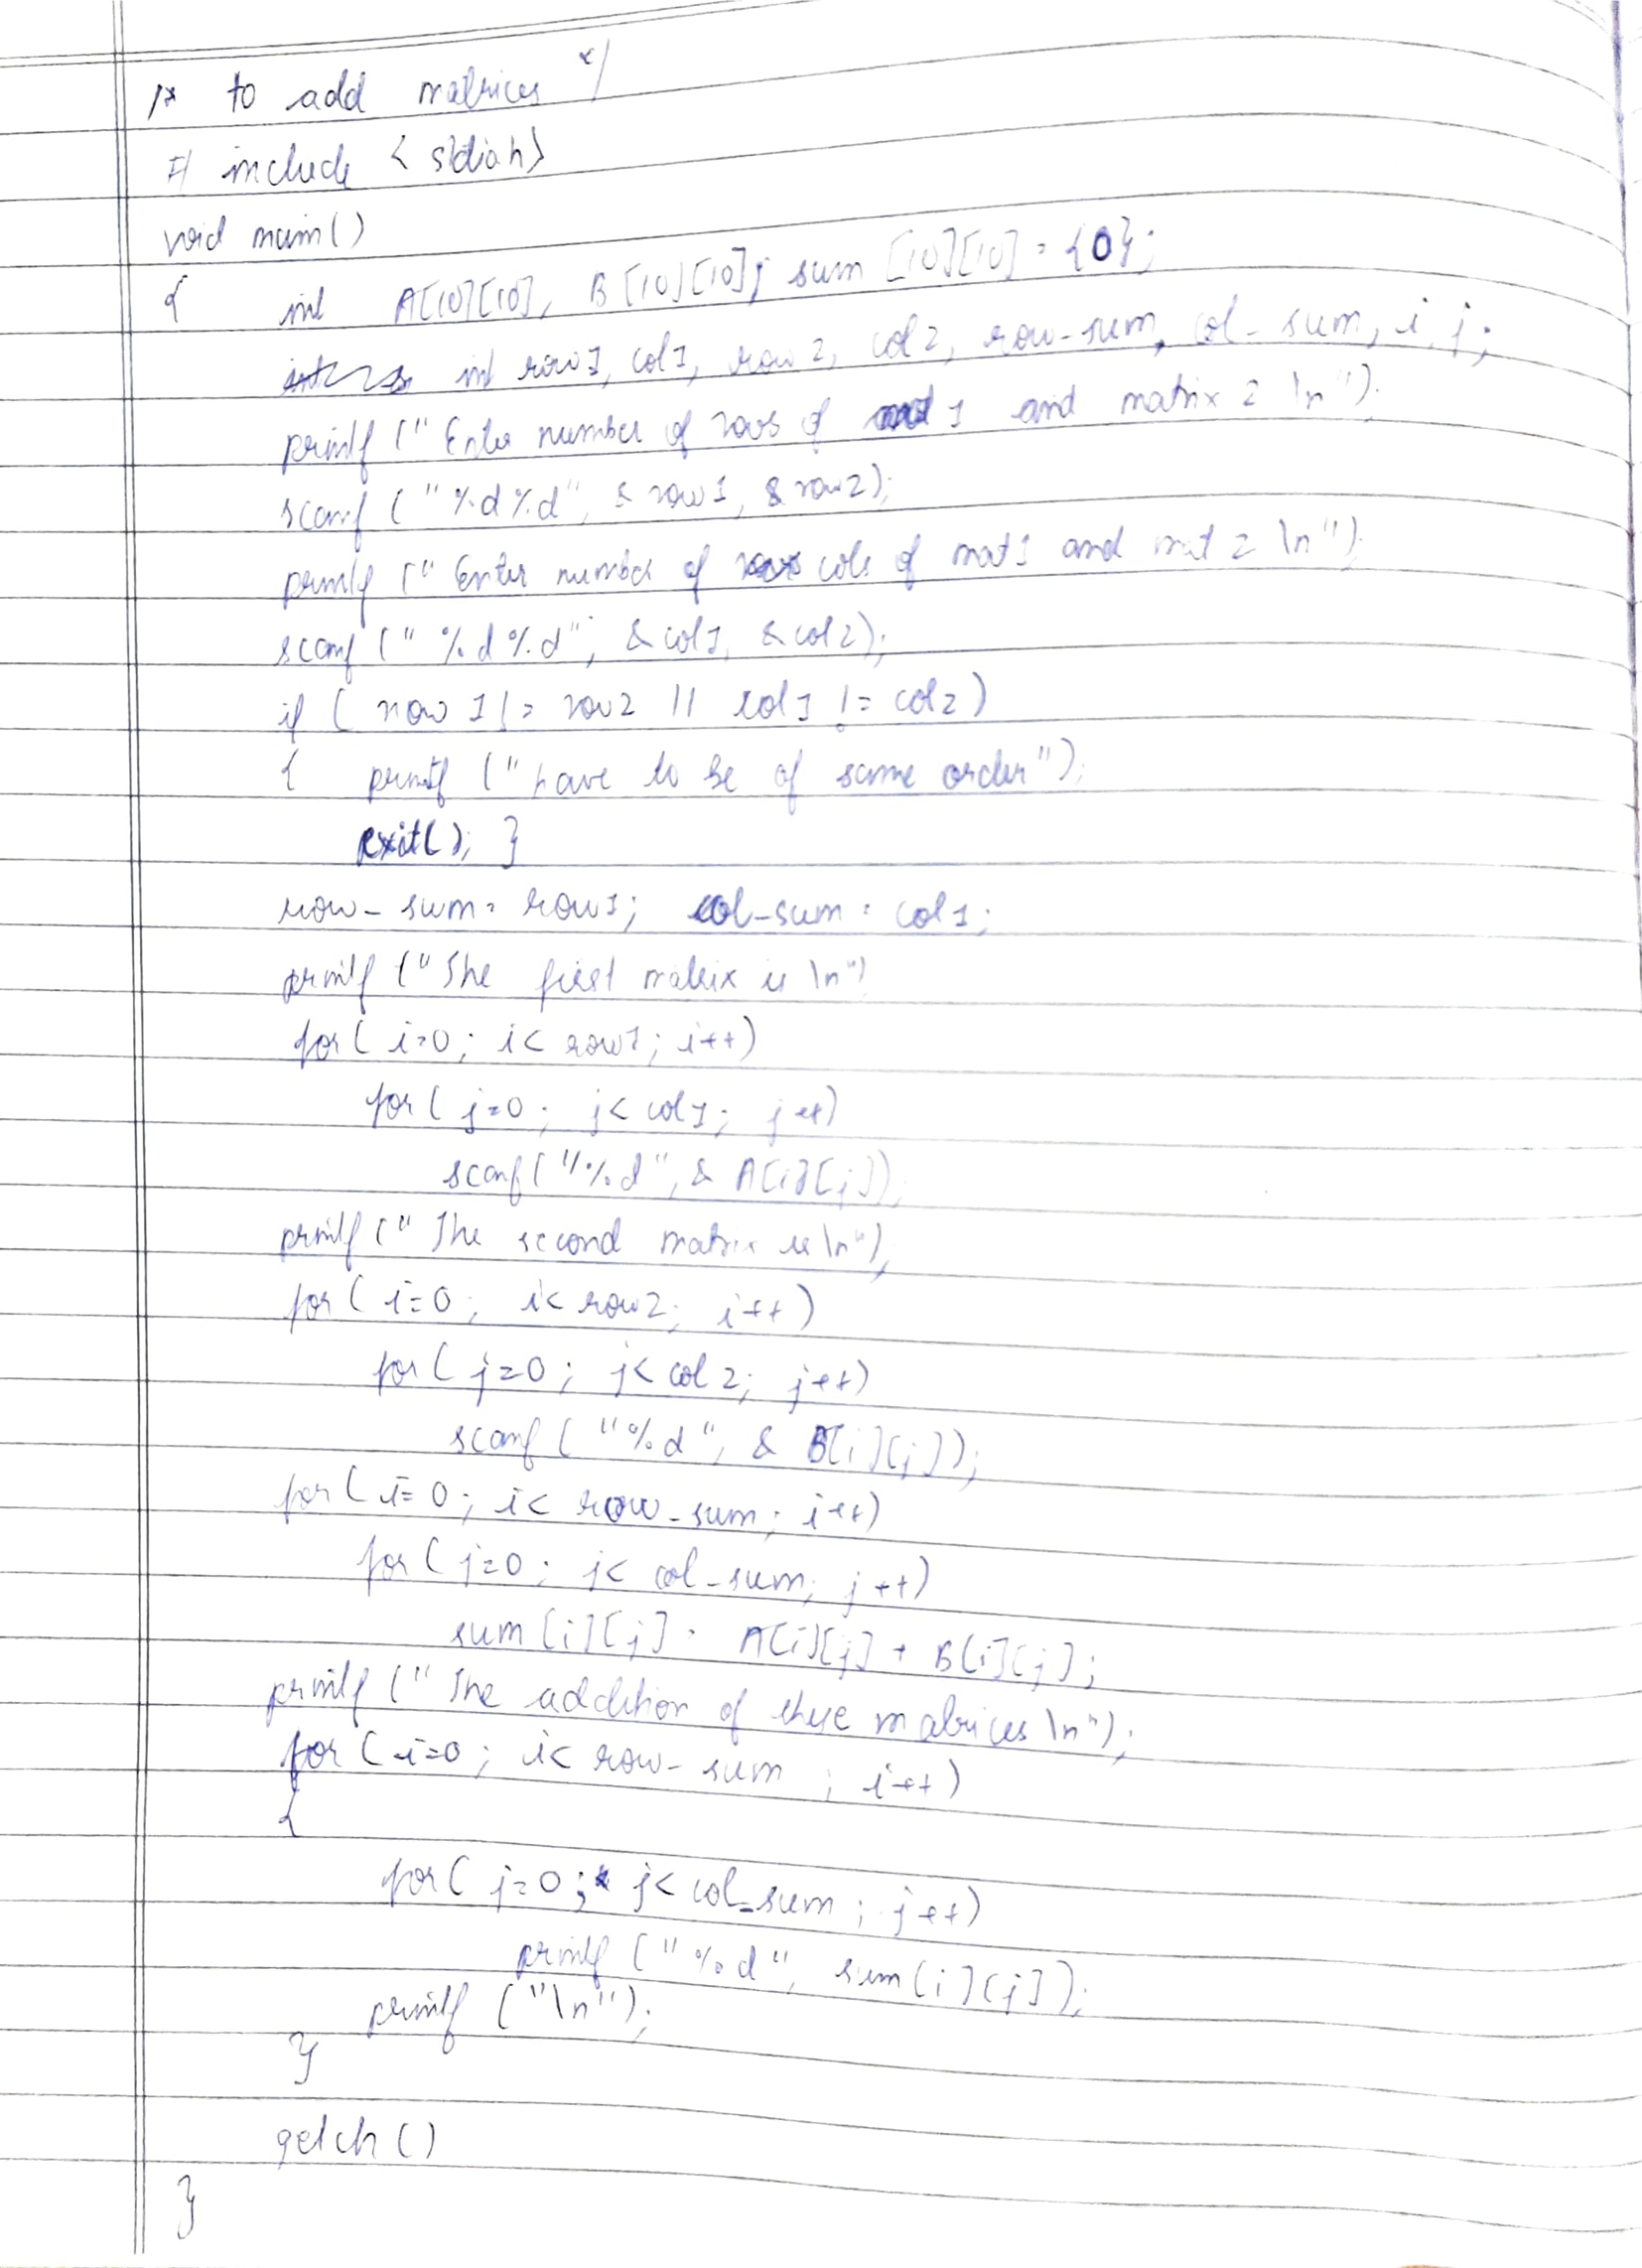 /* to add matrices */
# include <stdio.h>
void main()
{ int A[10][10], B[10][10], sum [10][10] = {0};
int row1, col1, row2, col2, row-sum, col-sum, i, j;
printf (" Enter number of rows of mat 1 and matrix 2 \n");
scanf (" %d%d", & row1, & row2);
printf (" Enter number of cols of mat1 and mat 2 \n");
scanf (" %d%d", & col1, & col2);
if ( row 1 != row2 || col1 != col2 )
{ printf (" have to be of same order");
exit(); }
row- sum = row1; col-sum = col1;
printf (" The first matrix is \n")
for ( i=0 ; i< row1 ; i++)
for ( j=0 ; j< col1 ; j++)
scanf ("%d", & A[i][j]);
printf (" The second matrix is \n");
for ( i=0 ; i< row2; i++ )
for ( j=0 ; j< col 2; j++)
scanf ( "%d", & B[i][j]);
for ( i=0 ; i< row-sum ; i++)
for ( j=0 ; j< col-sum; j++)
sum [i][j] = A[i][j] + B[i][j];
printf (" The addition of these matrices \n");
for ( i=0 ; i< row- sum ; i++)
{
for ( j=0 ; j< col-sum ; j++)
printf (" %d", sum[i][j]);
printf ("\n");
}
getch ()
}